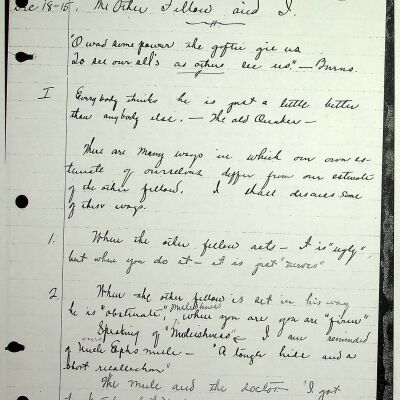 Dec 18-15. The Other Fellow and I.
"O wad some power the giftie gie us
To see oursel's as others see us." — Burns.
I Everybody thinks he is just a little better
than anybody else. — The old Quaker —
There are many ways in which our own es-
timate of ourselves differ from our estimate
of the other fellow. I shall discuss some
of these ways.
1. When the other fellow acts — it is "ugly",
but when you do it — it is just "nerves"
2. When the other fellow is set in his way
he is "obstinate," when you are you are "firm"
Speaking of "Mulishness" I am reminded
of Uncle Eph's mule — "A tough hide and a
short recollection"
The mule and the doctor — "I got